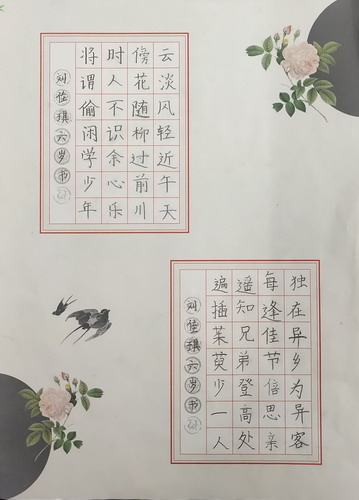 云淡风轻近午天
傍花随柳过前川
时人不识余心乐
将谓偷闲学少年
刘佳琪六岁书
独在异乡为异客
每逢佳节倍思亲
遥知兄弟登高处
遍插茱萸少一人
刘佳琪六岁书